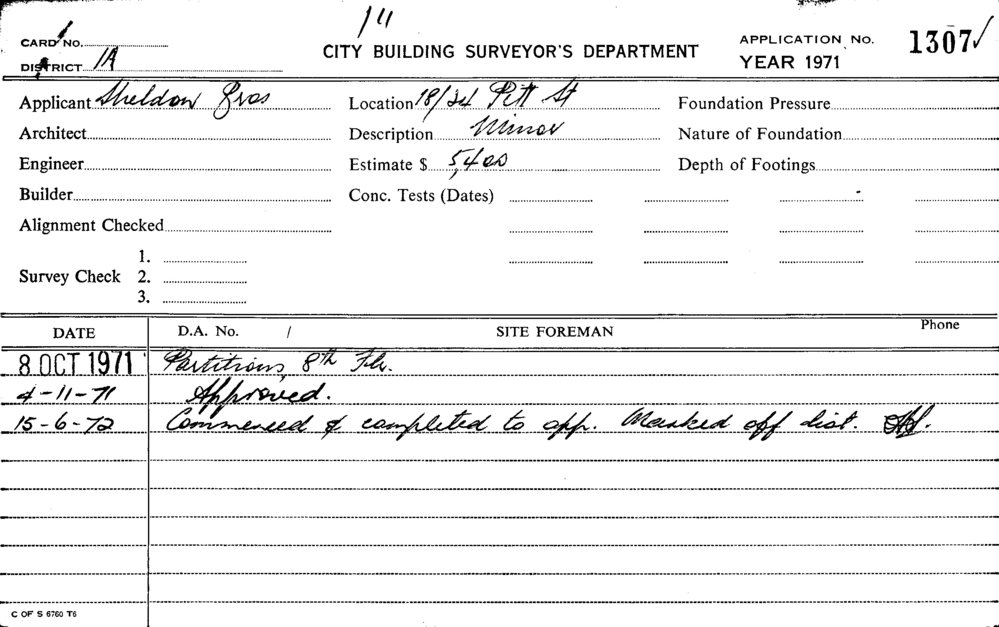 1 11
CARD No.
CITY BUILDING SURVEYOR'S DEPARTMENT
APPLICATION No. 1307 ✓
DISTRICT 1A
YEAR 1971
Applicant Sheldon Bros Location 18/34 Pitt St Foundation Pressure
Architect Description Minor Nature of Foundation
Engineer Estimate $ 5,400 Depth of Footings
Builder Conc. Tests (Dates)
Alignment Checked
Survey Check 1.
2.
3.
DATE D.A. No. / SITE FOREMAN Phone
8 OCT 1971 Partitions, 8th Flr.
4-11-71 Approved.
15-6-72 Commenced & completed to app. Marked off dist.
C OF S 6760 T6